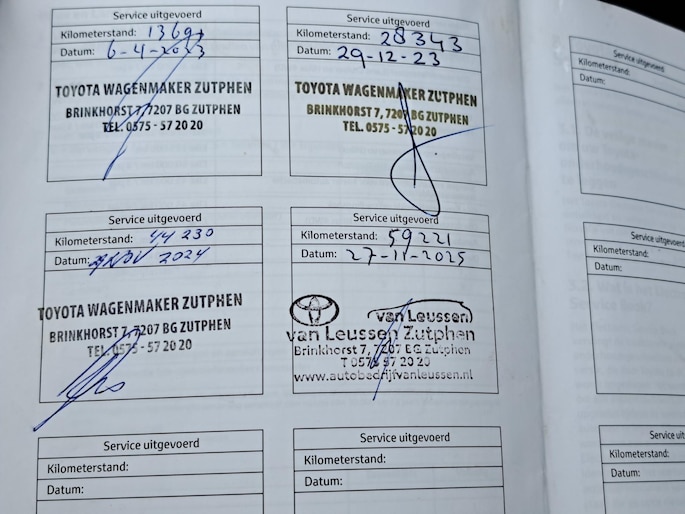 Service uitgevoerd
Kilometerstand: 13691
Datum: 6-4-2023
TOYOTA WAGENMAKER ZUTPHEN
BRINKHORST 7, 7207 BG ZUTPHEN
TEL. 0575 - 57 20 20
Service uitgevoerd
Kilometerstand: 28343
Datum: 29-12-23
TOYOTA WAGENMAKER ZUTPHEN
BRINKHORST 7, 7207 BG ZUTPHEN
TEL. 0575 - 57 20 20
Service uitgevoerd
Kilometerstand: 44 230
Datum: NOV 2024
TOYOTA WAGENMAKER ZUTPHEN
BRINKHORST 7, 7207 BG ZUTPHEN
TEL. 0575 - 57 20 20
Service uitgevoerd
Kilometerstand: 59221
Datum: 27-11-2025
van Leussen
van Leussen Zutphen
Brinkhorst 7, 7207 BG Zutphen
T 0575 57 20 20
www.autobedrijfvanleussen.nl
Service uitgevoerd
Kilometerstand:
Datum:
Service uitgevoerd
Kilometerstand:
Datum:
Service uitgevoerd
Kilometerstand:
Datum:
Service uitgevoerd
Kilometerstand:
Datum:
Service uit
Kilometerstand:
Datum: